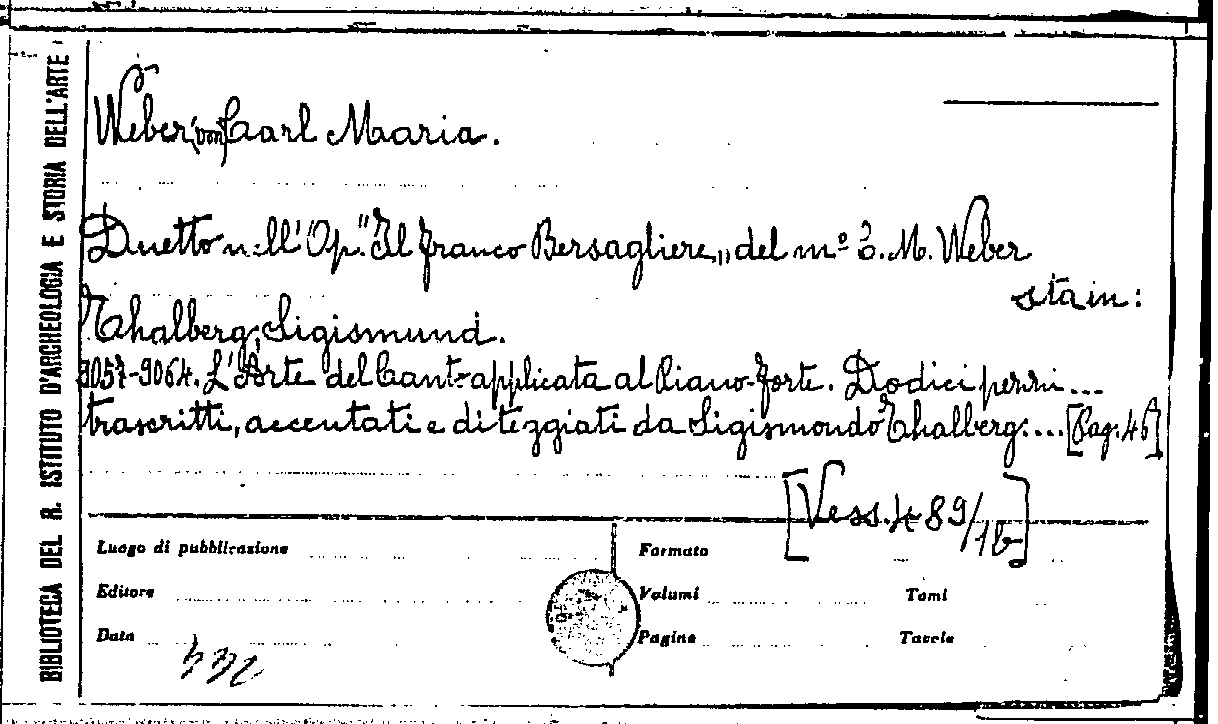 BIBLIOTECA DEL R. ISTITUTO D'ARCHEOLOGIA E STORIA DELL'ARTE
Weber (von) Carl Maria.
Duetto nell'Op. "Il franco Bersagliere,, del mº C. M. Weber
sta in:
Thalberg, Sigismund.
9057-9064. L'Arte del Canto applicata al Piano-forte. Dodici pezzi...
trascritti, accentati e diteggiati da Sigismondo Thalberg.... [Pag. 46]
[Vess. 489/16]
Luogo di pubblicazione
Formato
Editore
Volumi
Tomi
Data
Pagine
Tavole